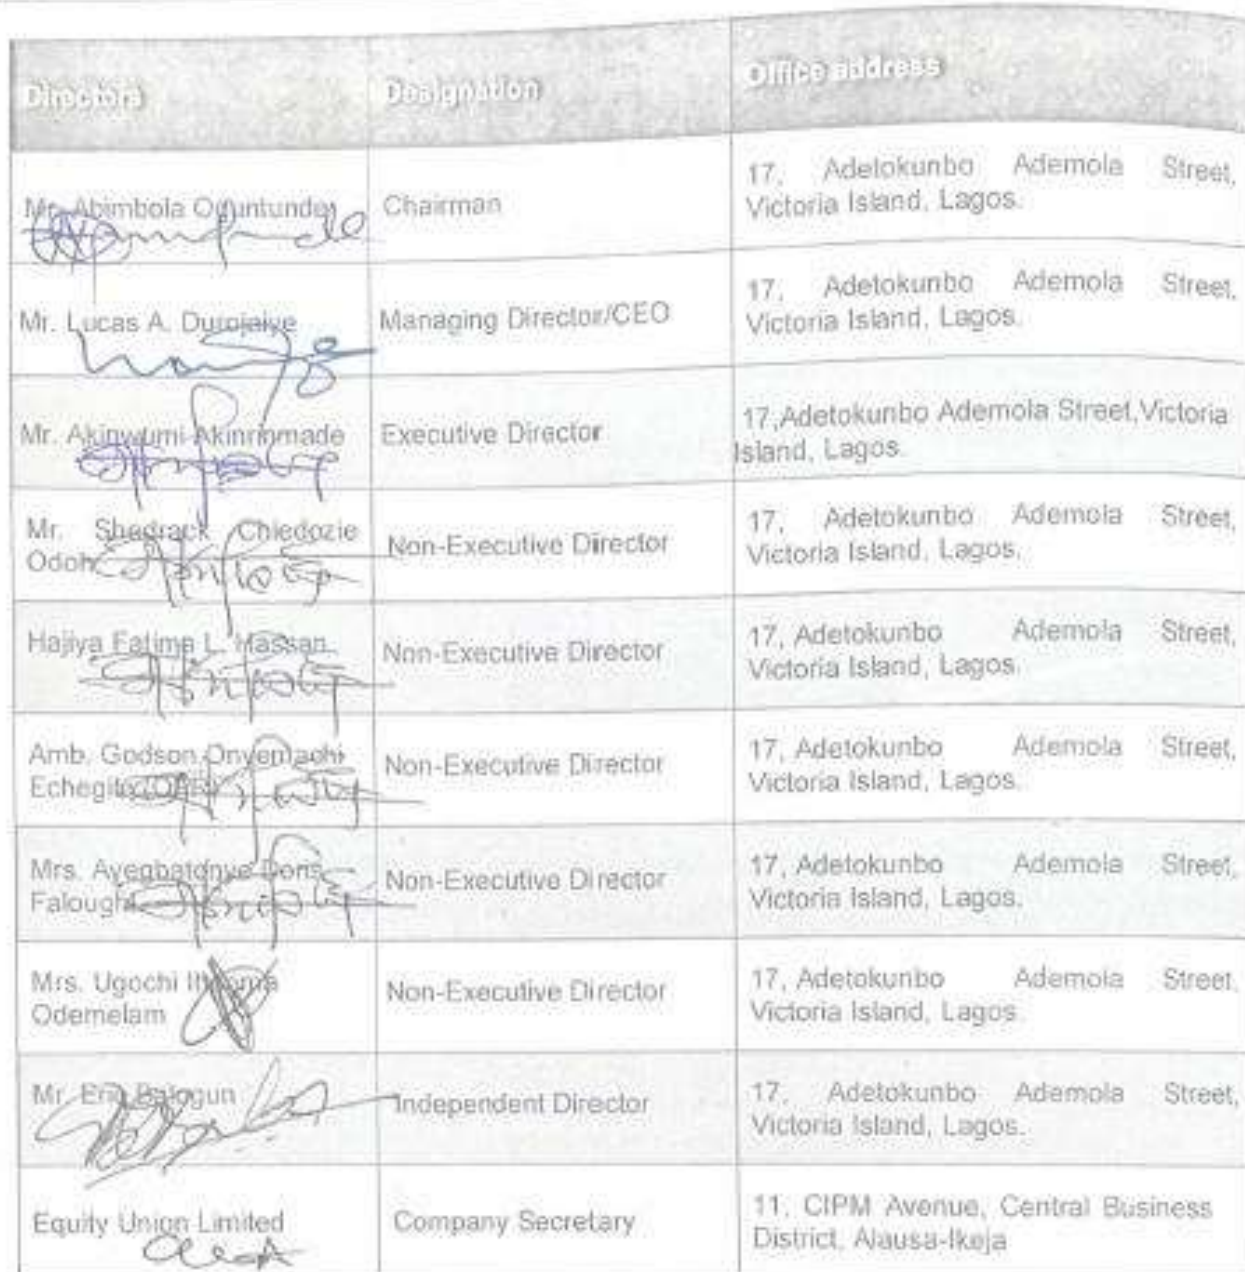 Directors Designation Office address
Mr. Abimbola Chairman 17, Adetokunbo Ademola Street,
Victoria Island, Lagos.
Mr. Lucas A. Durojaiye Managing Director/CEO 17, Adetokunbo Ademola Street,
Victoria Island, Lagos.
Mr. Akinwumi Akinrinmade Executive Director 17,Adetokunbo Ademola Street,Victoria
Island, Lagos.
Mr. Shedrack Chiedozie Non-Executive Director 17, Adetokunbo Ademola Street,
Odoh Victoria Island, Lagos.
Hajiya Fatima L. Hassan Non-Executive Director 17, Adetokunbo Ademola Street,
Victoria Island, Lagos.
Amb. Godson Onyemachi Non-Executive Director 17, Adetokunbo Ademola Street,
Victoria Island, Lagos.
Mrs. Doris Non-Executive Director 17, Adetokunbo Ademola Street,
Victoria Island, Lagos.
Mrs. Ugochi Non-Executive Director 17, Adetokunbo Ademola Street,
Odemelam Victoria Island, Lagos.
Mr. Eric Balogun Independent Director 17, Adetokunbo Ademola Street,
Victoria Island, Lagos.
Equity Union Limited Company Secretary 11, CIPM Avenue, Central Business
District, Alausa-Ikeja